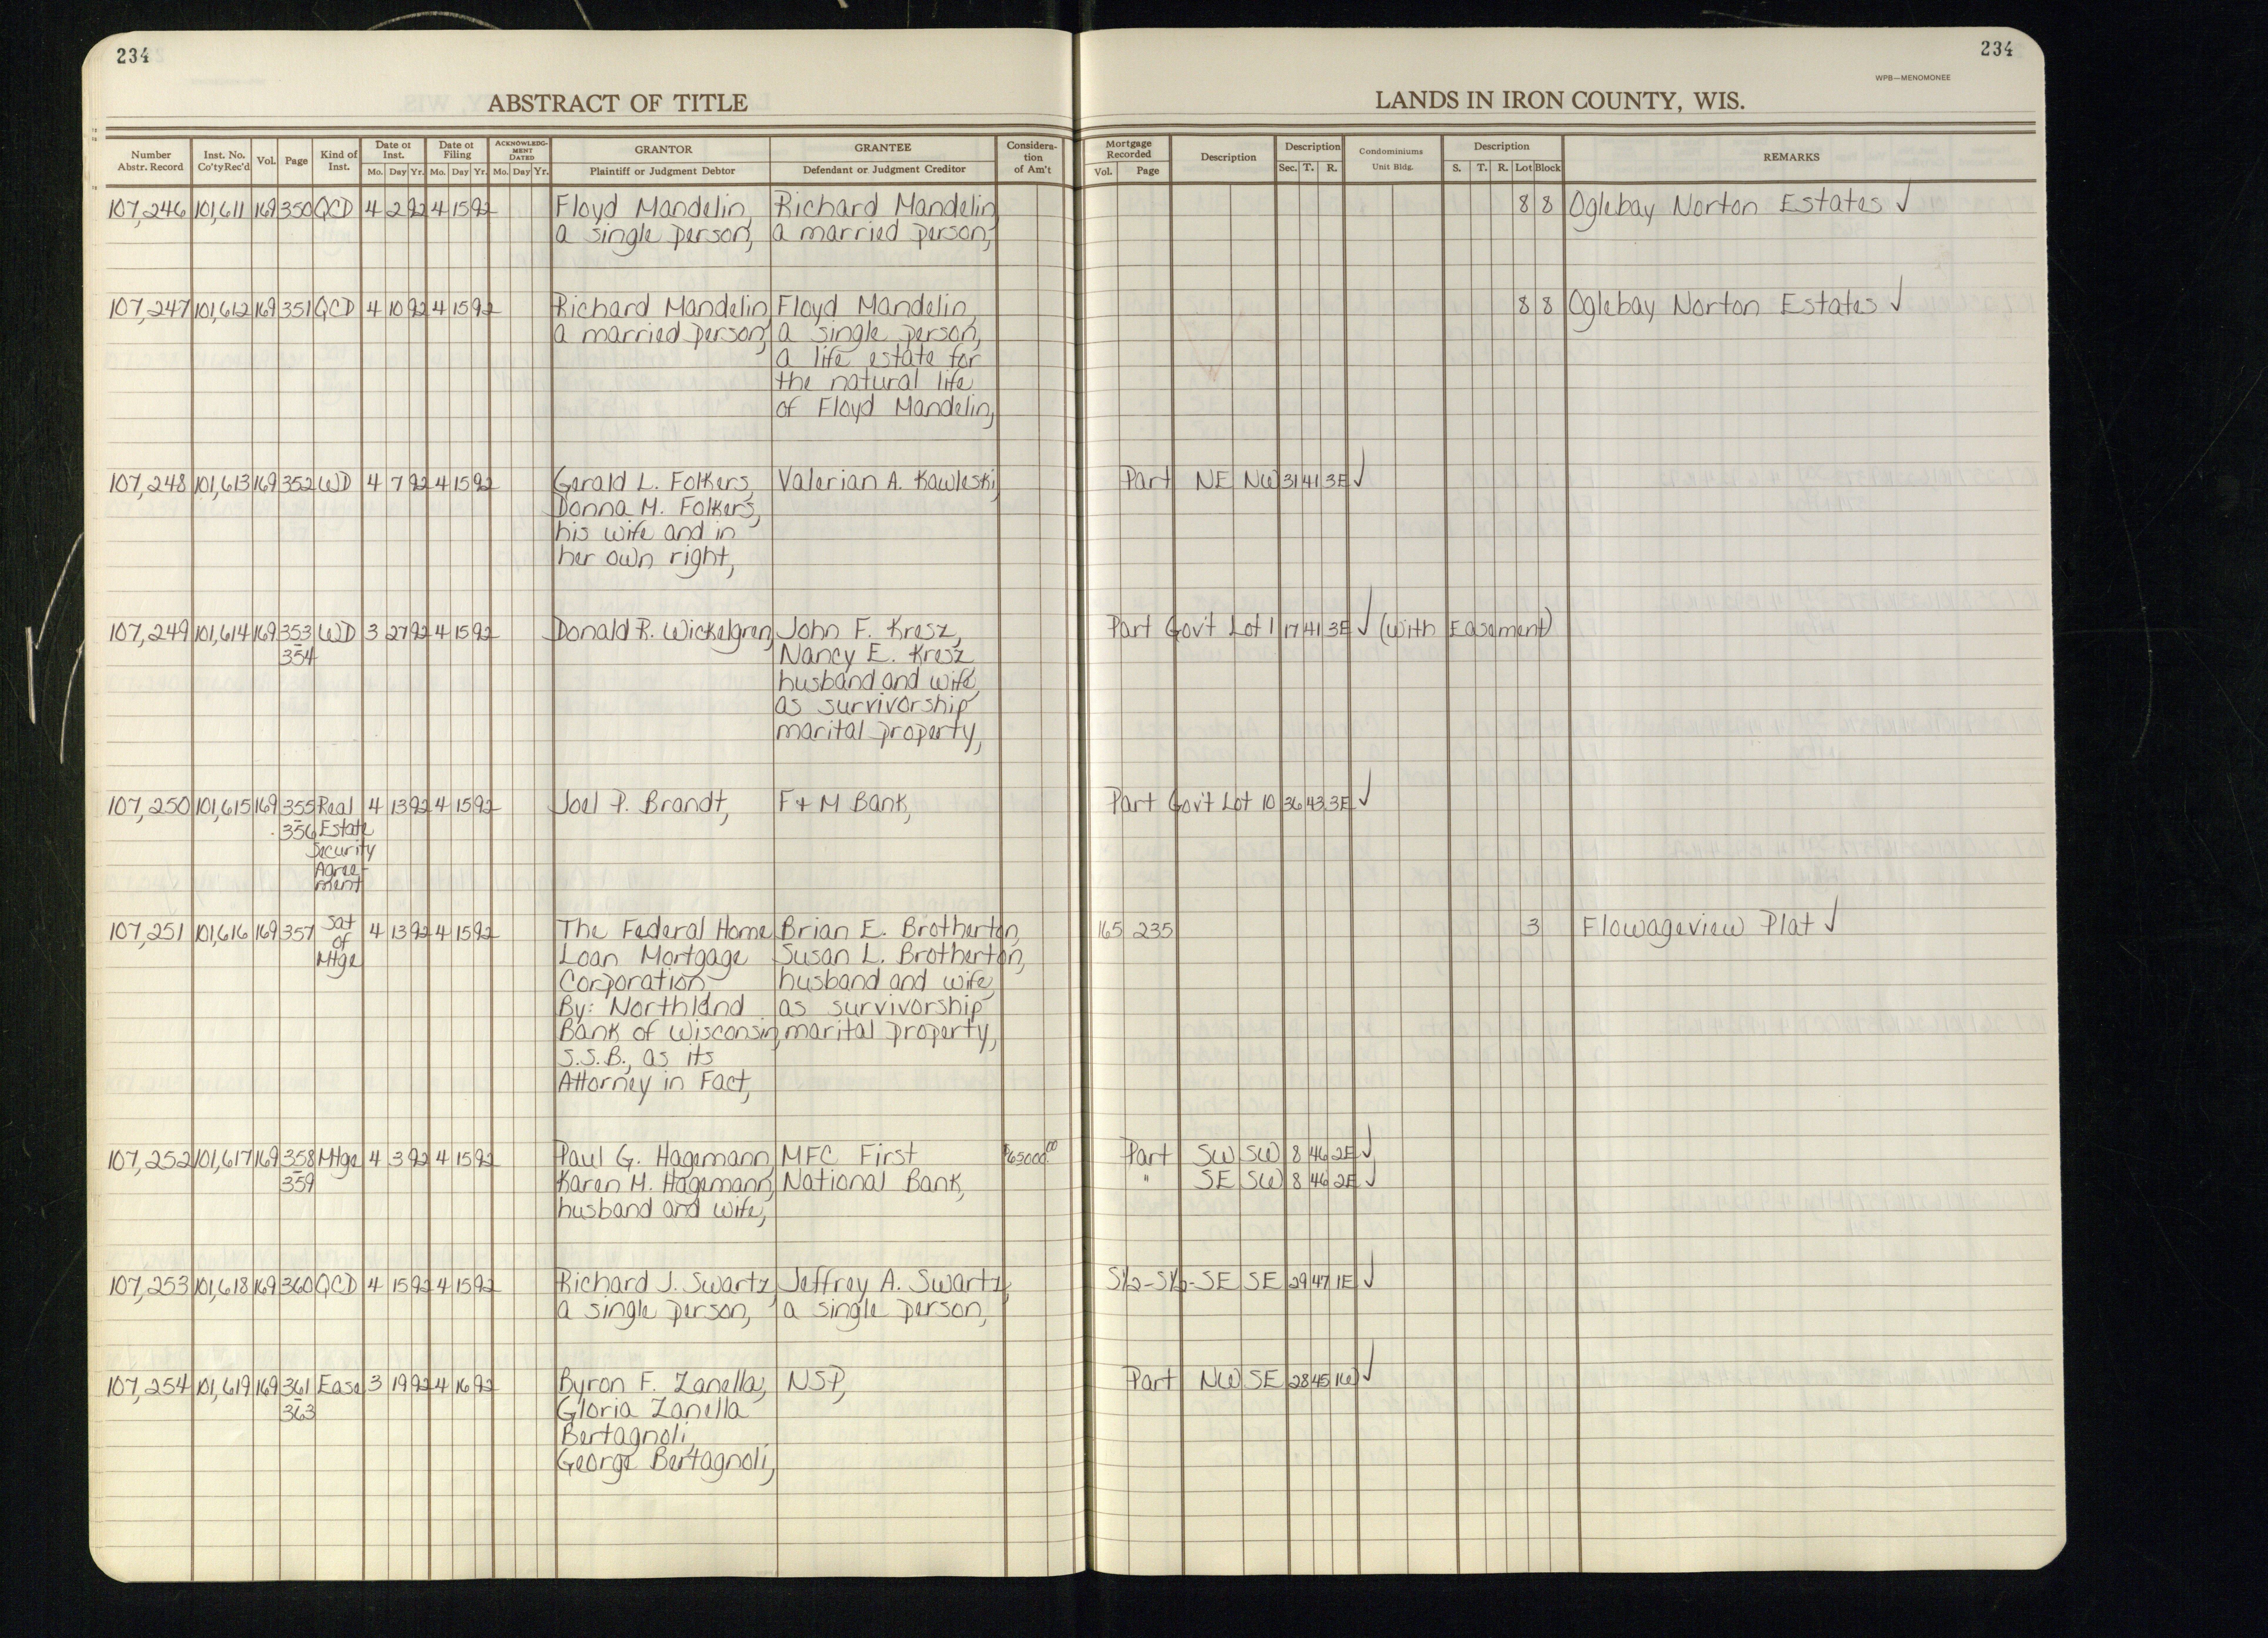 234
234
WPB—MENOMONEE
ABSTRACT OF TITLE
LANDS IN IRON COUNTY, WIS.
Number Abstr. Record | Inst. No. Co'ty Rec'd | Vol. | Page | Kind of Inst. | Date of Inst. Mo. Day Yr. | Date of Filing Mo. Day Yr. | ACKNOWLEDGMENT DATED Mo. Day Yr. | GRANTOR Plaintiff or Judgment Debtor | GRANTEE Defendant or Judgment Creditor | Consideration of Am't | Mortgage Recorded Vol. Page | Description | Description Sec. T. R. | Condominiums Unit Bldg. | Description S. T. R. Lot Block | REMARKS
107,246 101,611 169 350 QCD 4 2 92 4 15 92 Floyd Mandelin, Richard Mandelin 8 8 Oglebay Norton Estates ✓
a single person, a married person,
107,247 101,612 169 351 QCD 4 10 92 4 15 92 Richard Mandelin Floyd Mandelin, 8 8 Oglebay Norton Estates ✓
a married person, a single person,
a life estate for
the natural life
of Floyd Mandelin,
107,248 101,613 169 352 WD 4 7 92 4 15 92 Gerald L. Folkers, Valerian A. Kawleski, Part NE NW 31 41 3E ✓
Donna M. Folkers,
his wife and in
her own right,
107,249 101,614 169 353 WD 3 27 92 4 15 92 Donald R. Wickelgren, John F. Kresz, Part Gov't Lot 1 17 41 3E ✓ (with Easement)
-354 Nancy E. Kresz
husband and wife,
as survivorship
marital property,
107,250 101,615 169 355 Real 4 13 92 4 15 92 Joel P. Brandt, F + M Bank, Part Gov't Lot 10 36 43 3E ✓
-356 Estate
Security
Agree-
ment
107,251 101,616 169 357 Sat 4 13 92 4 15 92 The Federal Home Brian E. Brotherton, 165 235 3 Flowageview Plat ✓
of Loan Mortgage Susan L. Brotherton,
Mtge Corporation husband and wife,
By: Northland as survivorship
Bank of Wisconsin, marital property,
S.S.B., as its
Attorney in Fact,
107,252 101,617 169 358 Mtge 4 3 92 4 15 92 Paul G. Hagemann, MFC First $65000.00 Part SW SW 8 46 2E ✓
-359 Karen M. Hagemann, National Bank, " SE SW 8 46 2E ✓
husband and wife,
107,253 101,618 169 360 QCD 4 15 92 4 15 92 Richard J. Swartz, Jeffrey A. Swartz, S½-S½-SE SE 29 47 1E ✓
a single person, a single person,
107,254 101,619 169 361 Ease 3 19 92 4 16 92 Byron F. Zanella, NSP, Part NW SE 28 45 1W ✓
-363 Gloria Zanella
Bertagnoli,
George Bertagnoli,